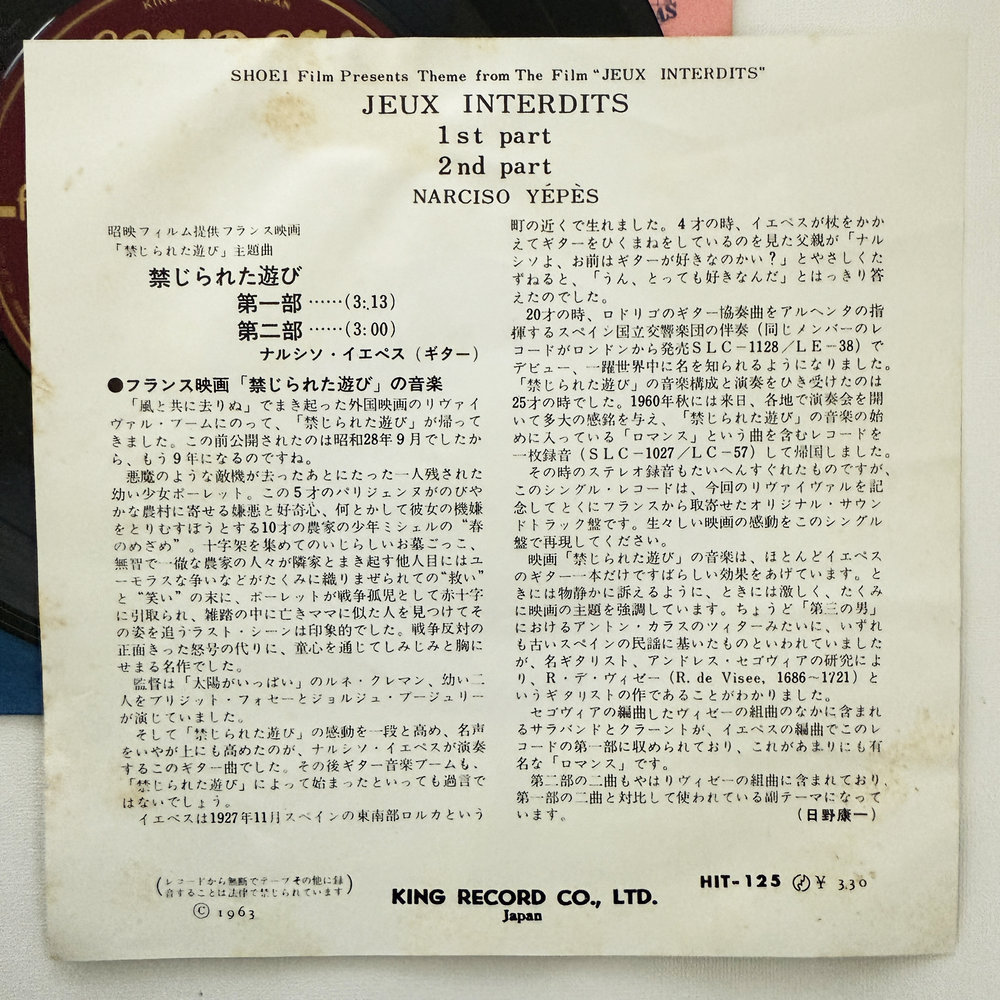 SHOEI Film Presents Theme from The Film "JEUX INTERDITS"
JEUX INTERDITS
1st part
2nd part
NARCISO YÉPÈS
昭映フィルム提供フランス映画
「禁じられた遊び」主題曲
禁じられた遊び
第一部……(3:13)
第二部……(3:00)
ナルシソ・イエペス(ギター)
●フランス映画「禁じられた遊び」の音楽
「風と共に去りぬ」でまき起った外国映画のリヴァイ
ヴァル・ブームにのって、「禁じられた遊び」が帰って
きました。この前公開されたのは昭和28年9月でしたか
ら、もう9年になるのですね。
悪魔のような敵機が去ったあとにたった一人残された
幼い少女ポーレット。この5才のパリジェンヌがのびや
かな農村に寄せる嫌悪と好奇心、何とかして彼女の機嫌
をとりむすぼうとする10才の農家の少年ミシェルの“春
のめざめ”。十字架を集めてのいじらしいお墓ごっこ、
無智で一徹な農家の人々が隣家とまき起す他人目にはユ
ーモラスな争いなどがたくみに織りまぜられての“救い”
と“笑い”の末に、ポーレットが戦争孤児として赤十字
に引取られ、雑踏の中に亡きママに似た人を見つけてそ
の姿を追うラスト・シーンは印象的でした。戦争反対の
正面きった怒号の代りに、童心を通じてしみじみと胸に
せまる名作でした。
監督は「太陽がいっぱい」のルネ・クレマン、幼い二
人をブリジット・フォセーとジョルジュ・プージュリー
が演じていました。
そして「禁じられた遊び」の感動を一段と高め、名声
をいやが上にも高めたのが、ナルシソ・イエペスが演奏
するこのギター曲でした。その後ギター音楽ブームも、
「禁じられた遊び」によって始まったといっても過言で
はないでしょう。
イエペスは1927年11月スペインの東南部ロルカという
町の近くで生れました。4才の時、イエペスが杖をかか
えてギターをひくまねをしているのを見た父親が「ナル
シソよ、お前はギターが好きなのかい?」とやさしくた
ずねると、「うん、とっても好きなんだ」とはっきり答
えたのでした。
20才の時、ロドリゴのギター協奏曲をアルヘンタの指
揮するスペイン国立交響楽団の伴奏(同じメンバーのレ
コードがロンドンから発売SLC−1128/LE−38)で
デビュー、一躍世界中に名を知られるようになりました。
「禁じられた遊び」の音楽構成と演奏をひき受けたのは
25才の時でした。1960年秋には来日、各地で演奏会を開
いて多大の感銘を与え、「禁じられた遊び」の音楽の始
めに入っている「ロマンス」という曲を含むレコードを
一枚録音(SLC−1027/LC−57)して帰国しました。
その時のステレオ録音もたいへんすぐれたものですが、
このシングル・レコードは、今回のリヴァイヴァルを記
念してとくにフランスから取寄せたオリジナル・サウン
ドトラック盤です。生々しい映画の感動をこのシングル
盤で再現してください。
映画「禁じられた遊び」の音楽は、ほとんどイエペス
のギター一本だけですばらしい効果をあげています。と
きには物静かに訴えるように、ときには激しく、たくみ
に映画の主題を強調しています。ちょうど「第三の男」
におけるアントン・カラスのツィターみたいに、いずれ
も古いスペインの民謡に基いたものといわれていました
が、名ギタリスト、アンドレス・セゴヴィアの研究によ
り、R・デ・ヴィゼー(R. de Visee, 1686〜1721)と
いうギタリストの作であることがわかりました。
セゴヴィアの編曲したヴィゼーの組曲のなかに含まれ
るサラバンドとクラーントが、イエペスの編曲でこのレ
コードの第一部に収められており、これがあまりにも有
名な「ロマンス」です。
第二部の二曲もやはりヴィゼーの組曲に含まれており、
第一部の二曲と対比して使われている副テーマになって
います。
(日野康一)
(レコードから無断でテープその他に録
音することは法律で禁じられています)
© 1963
KING RECORD CO., LTD.
Japan
HIT-125 ¥ 330